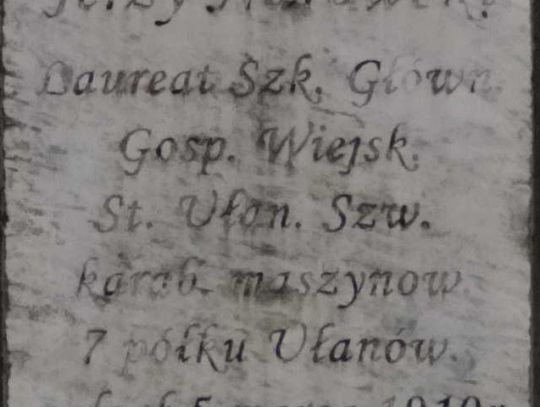 Laureat Szk. Główn.
Gosp. Wiejsk.
St. Ułan. Szw.
karab. maszynow.
7 półku Ułanów.
5